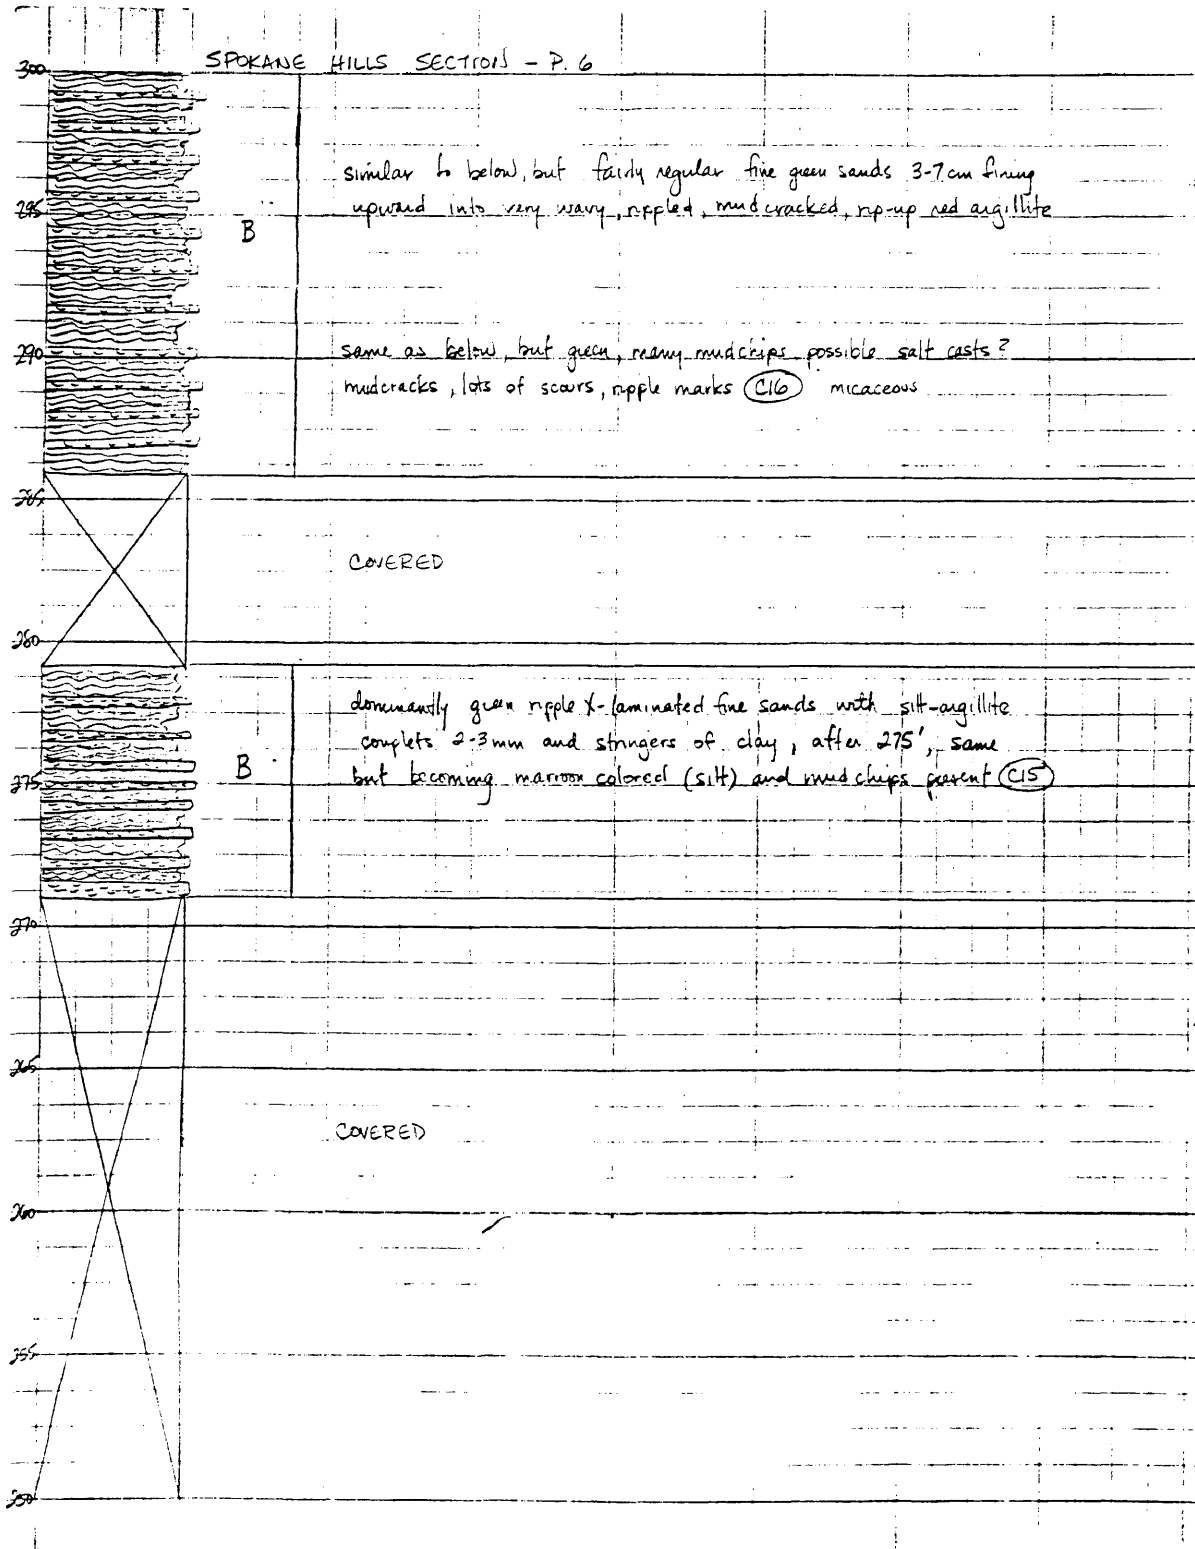 SPOKANE HILLS SECTION - P. 6
300
similar to below, but fairly regular fine green sands 3-7 cm fining
295
upward into very wavy, rippled, mudcracked, rip-up red argillite
B
290
same as below, but green, many mudchips possible salt casts?
mudcracks, lots of scours, ripple marks C16 micaceous
285
COVERED
280
dominantly green ripple X-laminated fine sands with silt-argillite
couplets 2-3mm and stringers of clay, after 275', same
B
275
but becoming maroon colored (silt) and mud chips present C15
270
265
COVERED
260
255
250